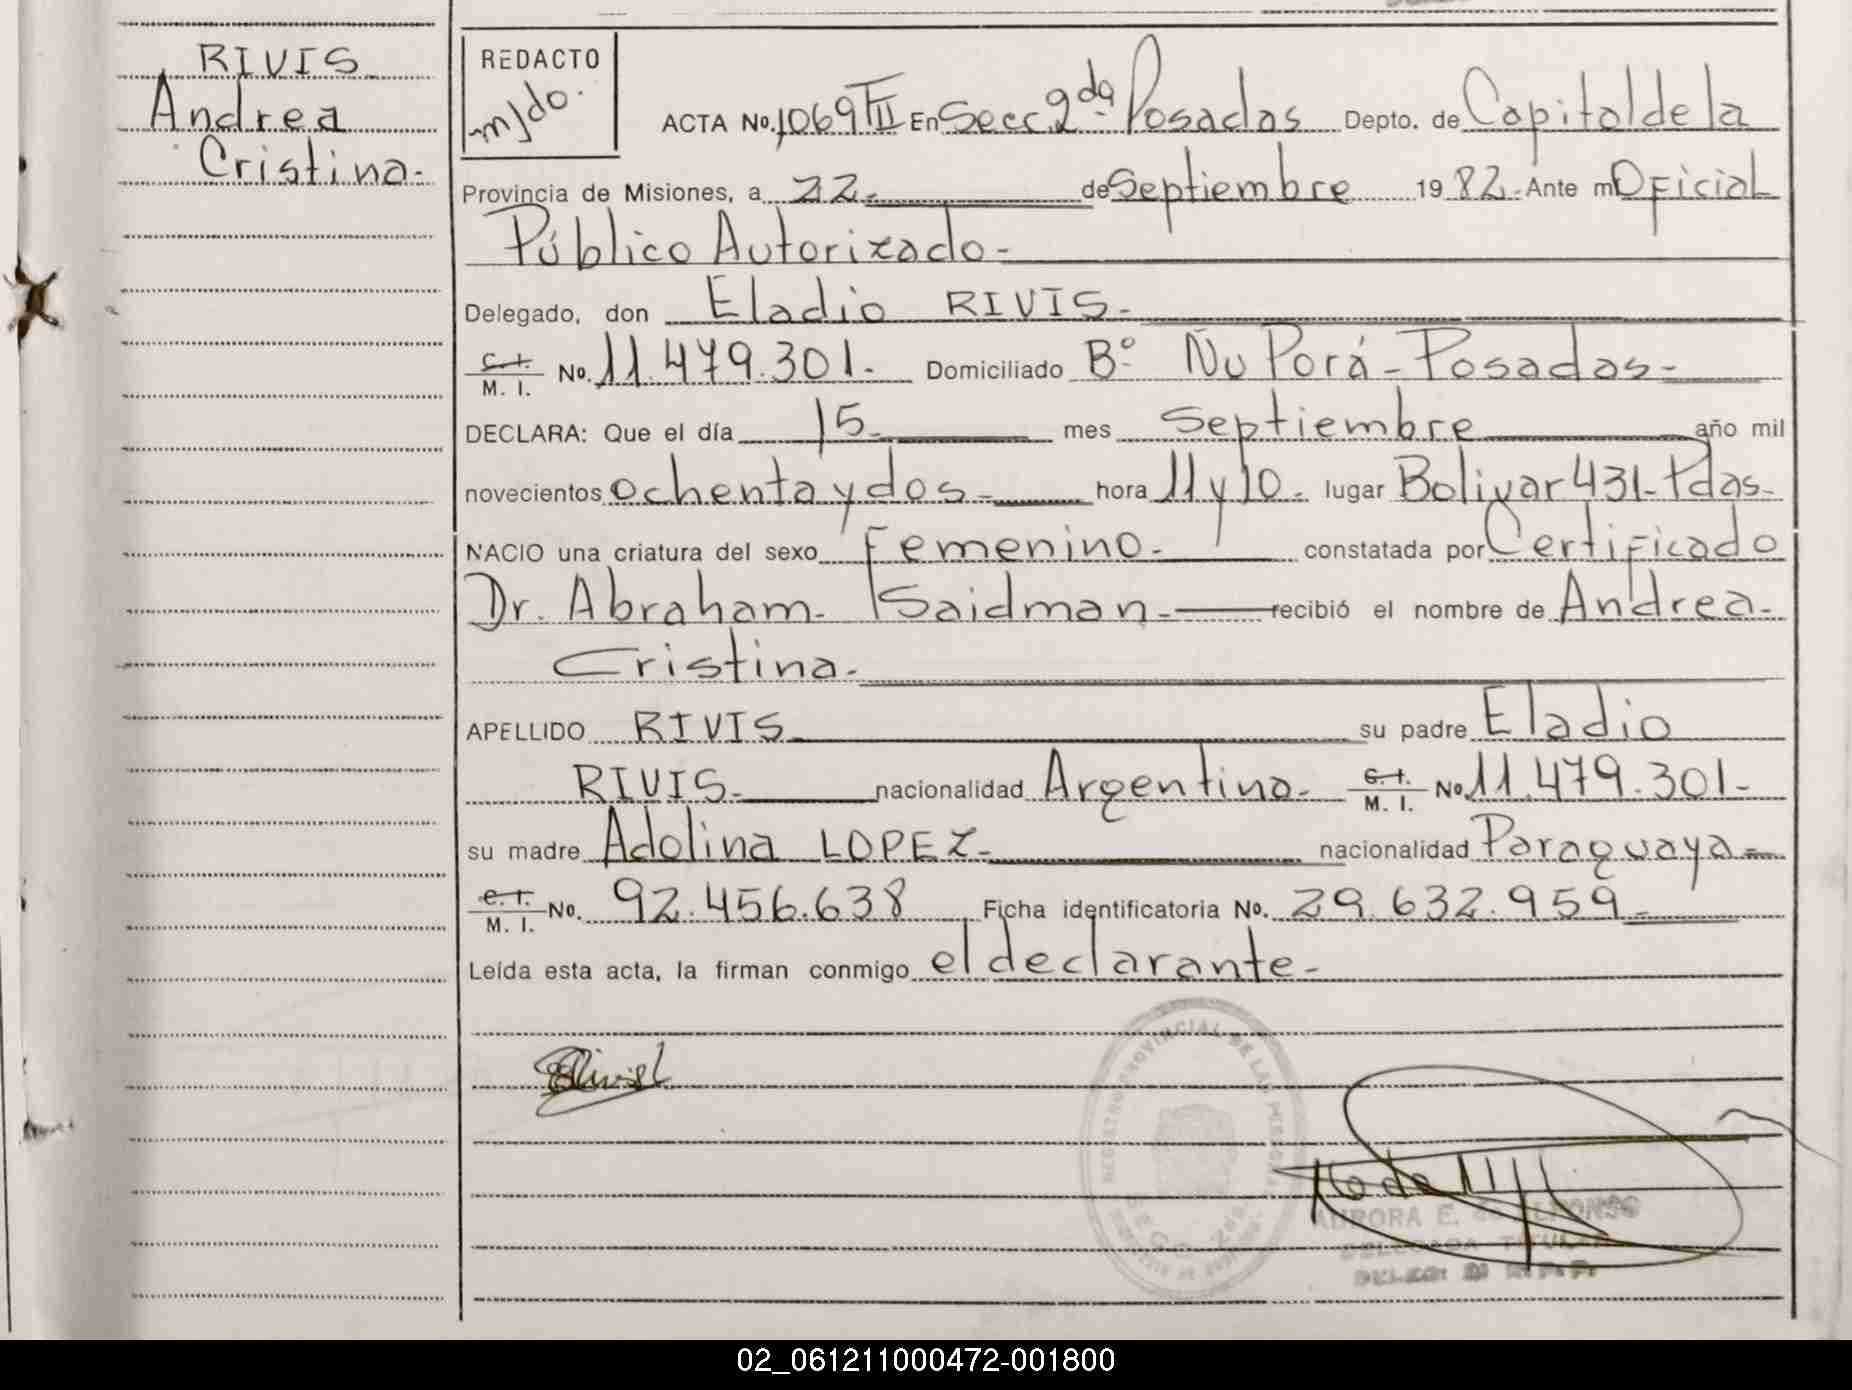 RIVIS
Andrea
Cristina.-
REDACTO
m/do.
ACTA No. 1069 TII En Secc. 2da Posadas Depto. de Capital de la
Provincia de Misiones, a 22.- de Septiembre 1982.- Ante mí Oficial
Público Autorizado.-
Delegado, don Eladio RIVIS.-
C. I.
M. I. No. 11.479.301.- Domiciliado Bº Ñu Porá - Posadas.-
DECLARA: Que el día 15.- mes Septiembre año mil
novecientos ochenta y dos.- hora 11 y 10.- lugar Bolivar 431.- Pdas.-
NACIO una criatura del sexo Femenino.- constatada por Certificado
Dr. Abraham.- Saidman.- recibió el nombre de Andrea.-
Cristina.-
APELLIDO RIVIS.- su padre Eladio
RIVIS.- nacionalidad Argentina.- C. I.
M. I. No. 11.479.301.-
su madre Adolina LOPEZ.- nacionalidad Paraguaya.-
C. I.
M. I. No. 92.456.638 Ficha identificatoria No. 29.632.959.-
Leída esta acta, la firman conmigo el declarante.-
REGISTRO PROVINCIAL DE LAS PERSONAS
SECC. 2da.
AURORA E. de ALFONSO
DELEGADA TITULAR
02_061211000472-001800